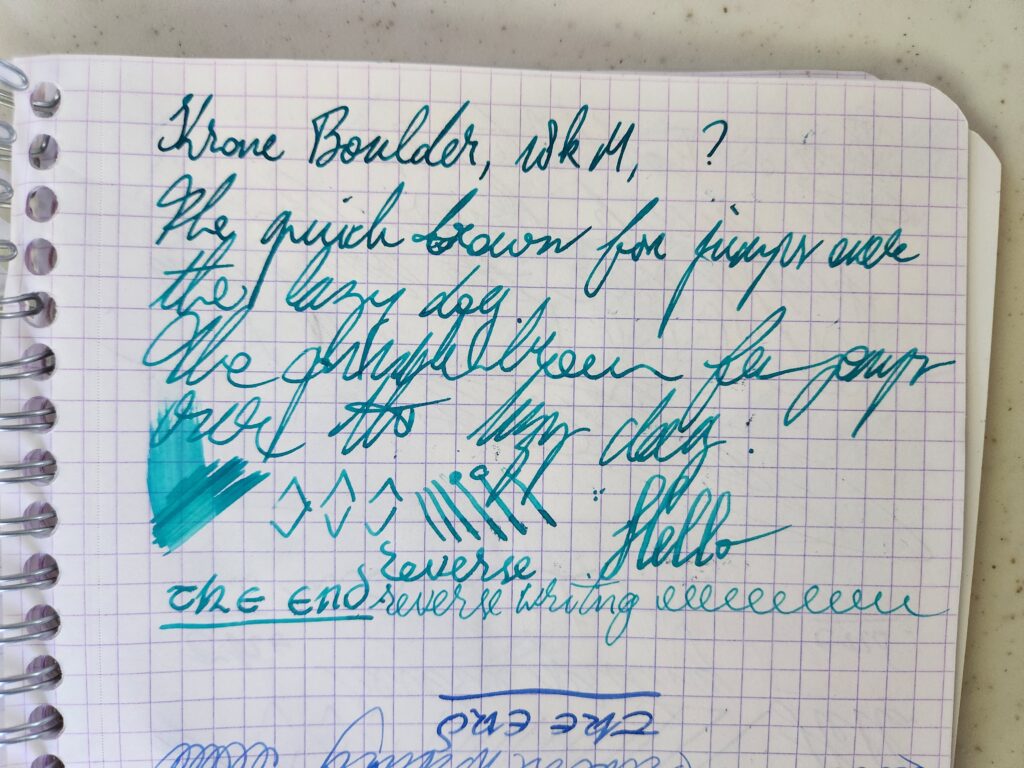 Krone Boulder, 18k M, ?
The quick brown fox jumps over
the lazy dog.
The brown fox jumps
over the lazy dog.
Hello
reverse
THE END reverse writng
THE END